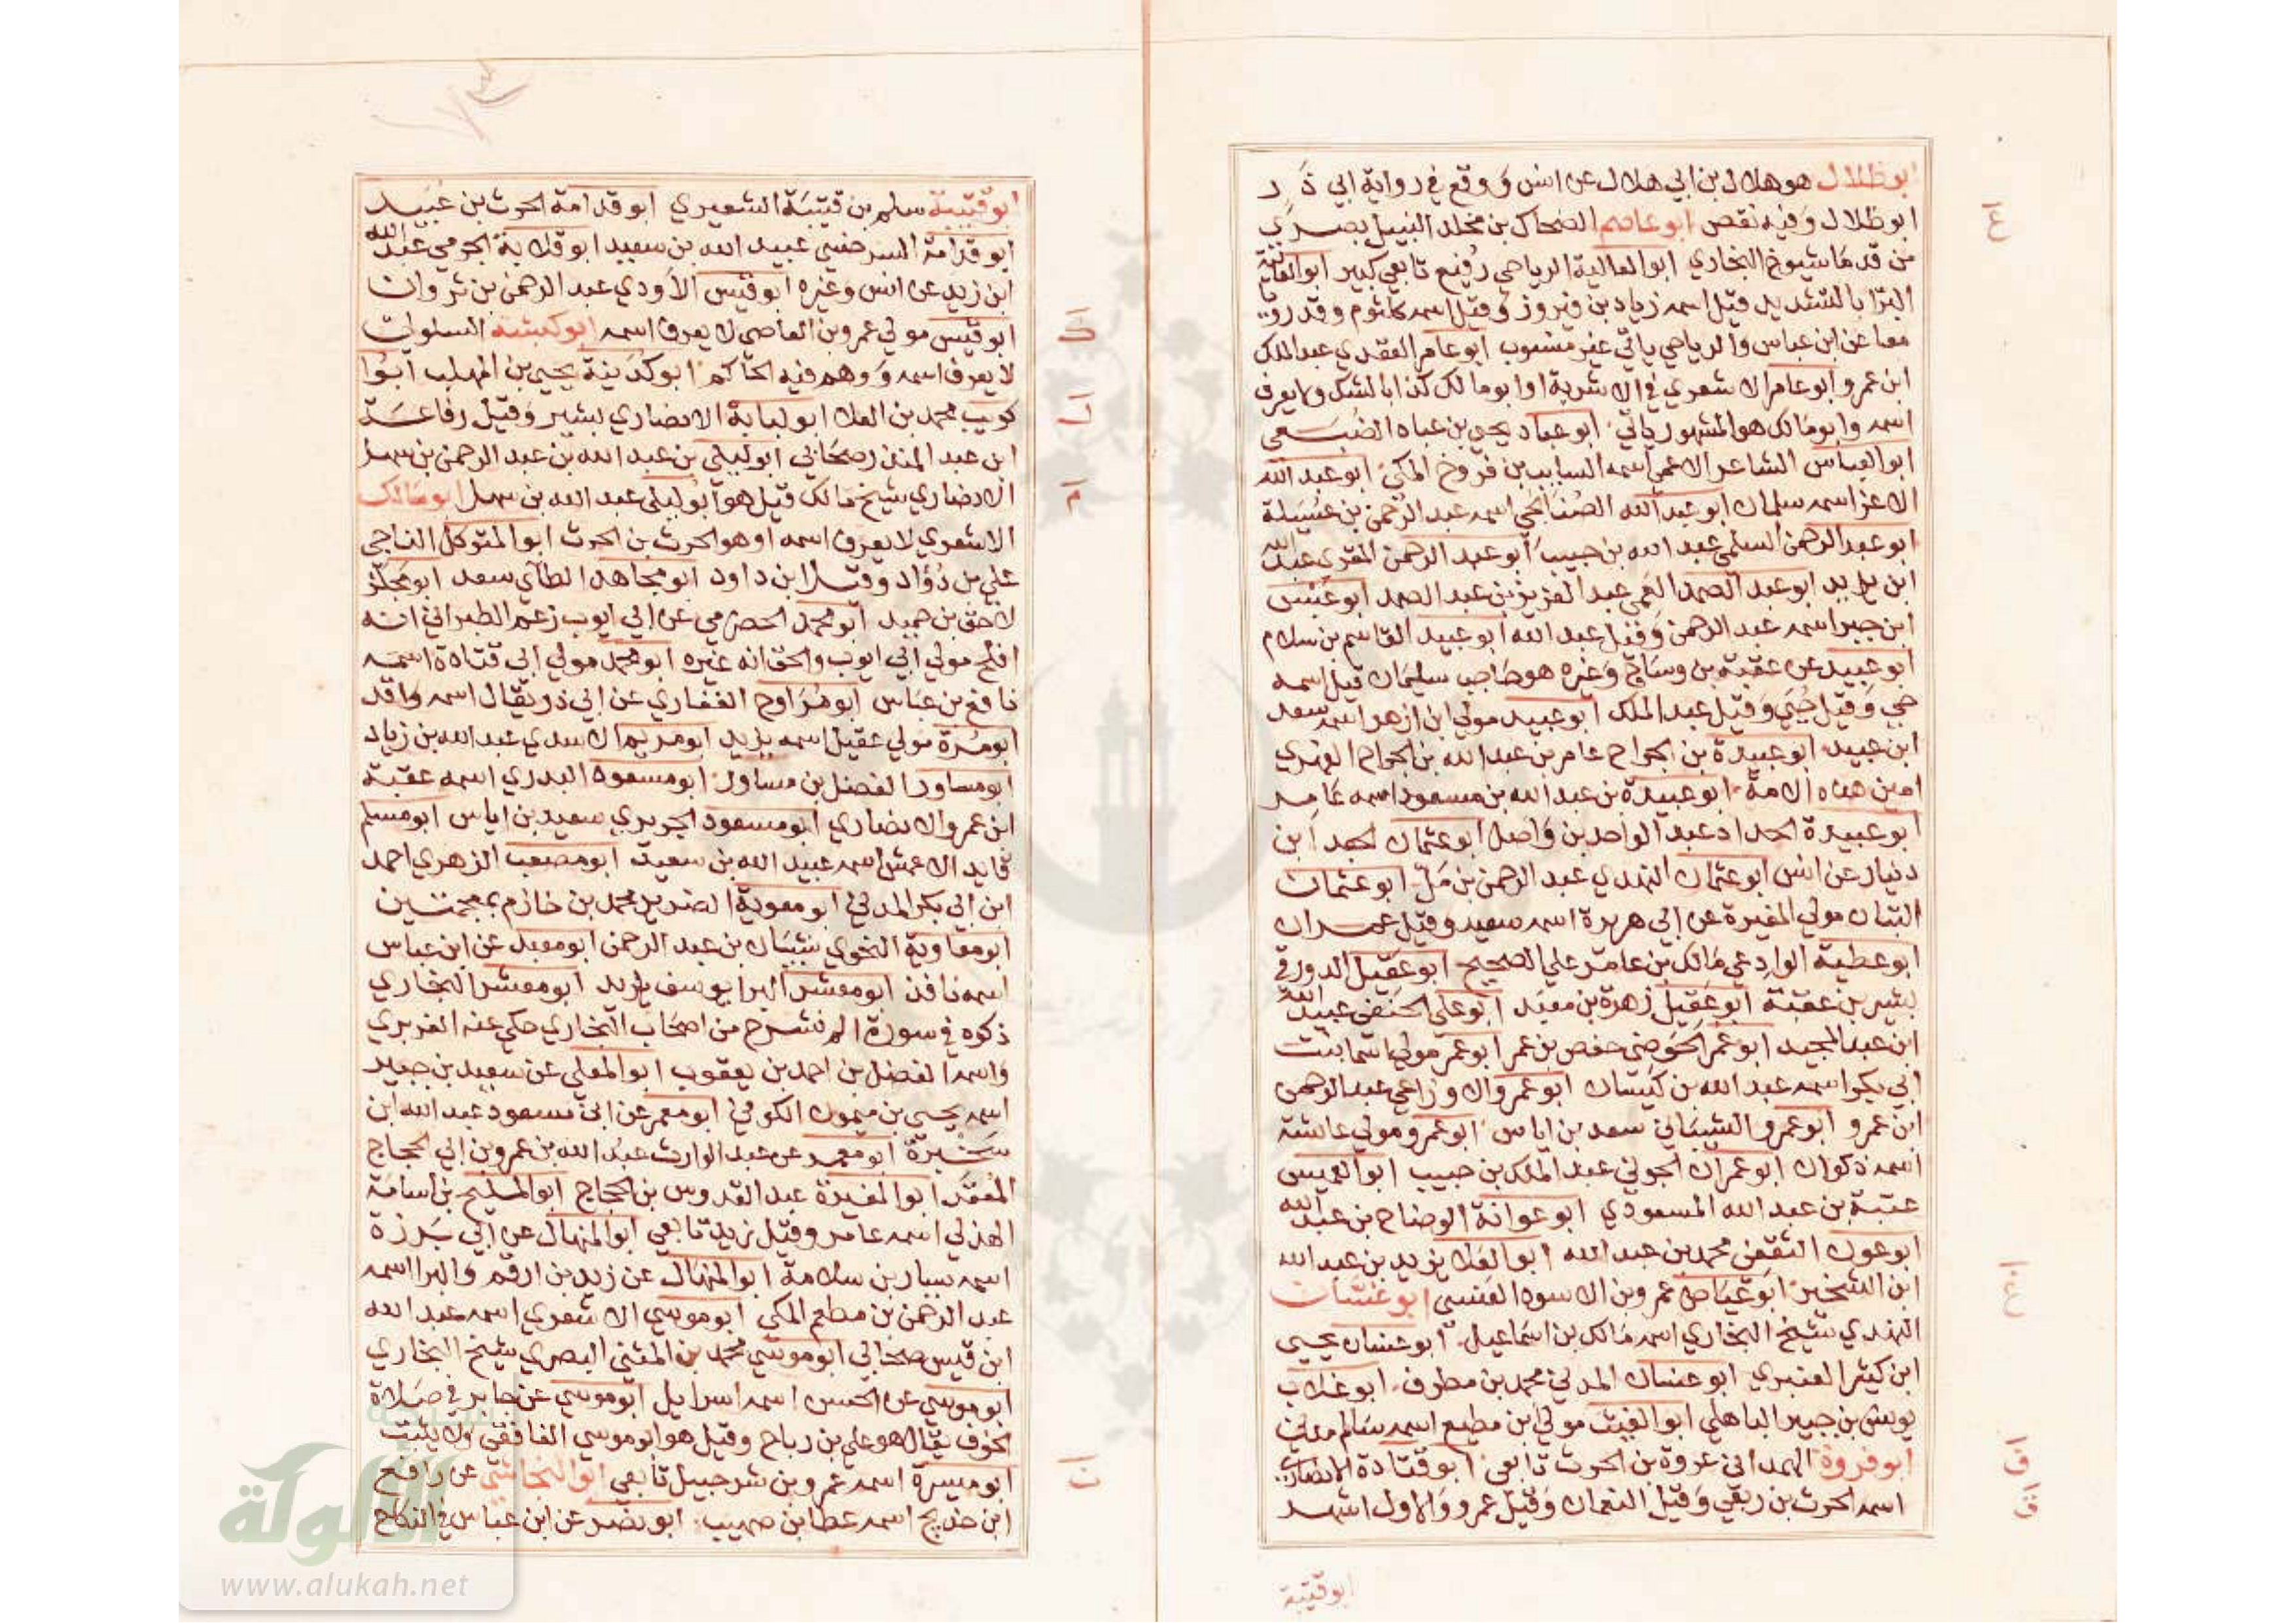 ابو ظلال هو هلال بن ابي هلال عن انس ووقع في رواية ابي ذر
ابو ظلال وفيه نقص ابو عاصم الضحاك بن مخلد النبيل بصري
من قدما شيوخ البخاري ابو العالية الرياحي رفيع تابعي كبير ابو العالية
البرا بالتشديد قيل اسمه زياد بن فيروز وقيل اسمه كلثوم وقد رويا
معا عن ابن عباس والرياحي ياتي غير منسوب ابو عامر العقدي عبد الملك
ابن عمرو ابو عامر الاشعري في الاشربة او ابو مالك كذا بالشك ولا يعرف
اسمه وابو مالك هو المشهور ياتي ابو عباد يحيى بن عباد الضبعي
ابو العباس الشاعر الاعمى اسمه السايب بن فروخ المكي ابو عبد الله
الاغر اسمه سلمان ابو عبد الله الصنابحي اسمه عبد الرحمن بن عسيلة
ابو عبد الرحمن السلمي عبد الله بن حبيب ابو عبد الرحمن المقري عبد الله
ابن يزيد ابو عبد الصمد العمي عبد العزيز بن عبد الصمد ابو عبس
ابن جبر اسمه عبد الرحمن وقيل عبد الله ابو عبيد القاسم بن سلام
ابو عبيد عن عقبة بن وساج وغيره هو حاجب سليمان قيل اسمه
حي وقيل حيي وقيل عبد الملك ابو عبيد مولي ابن ازهر اسمه سعد
ابن عبيد ابو عبيدة بن الجراح عامر بن عبد الله بن الجراح الفهري
امين هذه الامة ابو عبيدة بن عبد الله بن مسعود اسمه عامر
ابو عبيدة الحداد عبد الواحد بن واصل ابو عثمان الجعد ابن
دينار عن انس ابو عثمان النهدي عبد الرحمن بن مل ابو عثمان
التبان مولي المغيرة عن ابي هريرة اسمه سعيد وقيل عمران
ابو عطية الوادعي مالك بن عامر علي الصحيح ابو عقيل الدورقي
بشير بن عقبة ابو عقيل زهرة بن معبد ابو علي الحنفي عبيد الله
ابن عبد المجيد ابو عمر الحوضي حفص بن عمر ابو عمر مولي اسما بنت
ابي بكر اسمه عبد الله بن كيسان ابو عمرو الاوزاعي عبد الرحمن
ابن عمرو ابو عمرو الشيباني سعد بن اياس ابو عمرو مولي عايشة
اسمه ذكوان ابو عمران الجوني عبد الملك بن حبيب ابو العميس
عتبة بن عبد الله المسعودي ابو عوانة الوضاح بن عبد الله
ابو عون الثقفي محمد بن عبد الله ابو العلا يزيد بن عبد الله
ابن الشخير ابو عياض عمرو بن الاسود العنسي ابو غسان
النهدي شيخ البخاري اسمه مالك بن اسماعيل ابو غسان يحيى
ابن كثير العنبري ابو غسان المدني محمد بن مطرف ابو غلاب
يونس بن جبير الباهلي ابو الغيث مولي ابن مطيع اسمه سالم مدني
ابو فروة الهمداني عروة بن الحرث تابعي ابو قتادة الانصاري
اسمه الحرث بن ربعي وقيل النعمان وقيل عمرو والاول اشهر
ابو قتيبة
ع
غ
ف
ق
ابو قتيبة سلم بن قتيبة الشعيري ابو قدامة الحرث بن عبيد
ابو قدامة السرخسي عبيد الله بن سعيد ابو قلابة الجرمي عبد الله
ابن زيد عن انس وغيره ابو قيس الاودي عبد الرحمن بن ثروان
ابو قيس مولي عمرو بن العاصي لا يعرف اسمه ابو كبشة السلولي
لا يعرف اسمه ووهم فيه الحاكم ابو كدينة يحيى بن المهلب ابو
كريب محمد بن العلا ابو لبابة الانصاري بشير وقيل رفاعة
ابن عبد المنذر صحابي ابو ليلي بن عبد الله بن عبد الرحمن بن سهل
الانصاري شيخ مالك قيل هو ابو ليلي عبد الله بن سهل ابو مالك
الاشعري لا يعرف اسمه او هو الحرث بن الحرث ابو المتوكل الناجي
علي بن دؤاد وقيل ابن داود ابو مجاهد الطاي سعد ابو مجلز
لاحق بن حميد ابو محمد الحضرمي عن ابي ايوب زعم الطبراني انه
افلح مولي ابي ايوب والحق انه غيره ابو محمد مولي ابي قتادة اسمه
نافع بن عباس ابو مراوح الغفاري عن ابي ذر يقال اسمه واقد
ابو مرة مولي عقيل اسمه يزيد ابو مريم الاسدي عبد الله بن زياد
ابو مساور الفضل بن مساور ابو مسعود البدري اسمه عقبة
ابن عمرو الانصاري ابو مسعود الجريري سعيد بن اياس ابو مسلم
قايد الاعمش اسمه عبيد الله بن سعيد ابو مصعب الزهري احمد
ابن ابي بكر المدني ابو معوية الضرير محمد بن خازم بمعجمتين
ابو معاوية النحوي شيبان بن عبد الرحمن ابو معبد عن ابن عباس
اسمه نافذ ابو معشر البرا يوسف يزيد ابو معشر البخاري
ذكره في سورة الم نشرح من اصحاب البخاري حكي عنه الفربري
واسمه الفضل بن احمد بن يعقوب ابو المعلي عن سعيد بن جبير
اسمه يحيى بن ميمون الكوفي ابو معمر عن ابي مسعود عبد الله ابن
سخبرة ابو معمر عن عبد الوارث عبد الله بن عمرو بن ابي الحجاج
المقعد ابو المغيرة عبد القدوس بن الحجاج ابو المليح بن أسامة
الهذلي اسمه عامر وقيل زيد تابعي ابو المنهال عن ابي برزة
اسمه سيار بن سلامة ابو المنهال عن زيد بن ارقم والبرا اسمه
عبد الرحمن بن مطعم المكي ابو موسي الاشعري اسمه عبد الله
ابن قيس صحابي ابو موسي محمد بن المثني البصري شيخ البخاري
ابو موسي عن الحسن اسمه اسرايل ابو موسي عن جابر في صلاة
الخوف يقال هو علي بن رباح وقيل هو ابو موسي الغافقي ولا يثبت
ابو ميسرة اسمه عمرو بن شرحبيل تابعي ابو النجاشي عن رافع
ابن خديج اسمه عطا بن صهيب ابو نضر عن ابن عباس في النكاح
ك
ل
م
ن
شبكة
الألوكة
www.alukah.net